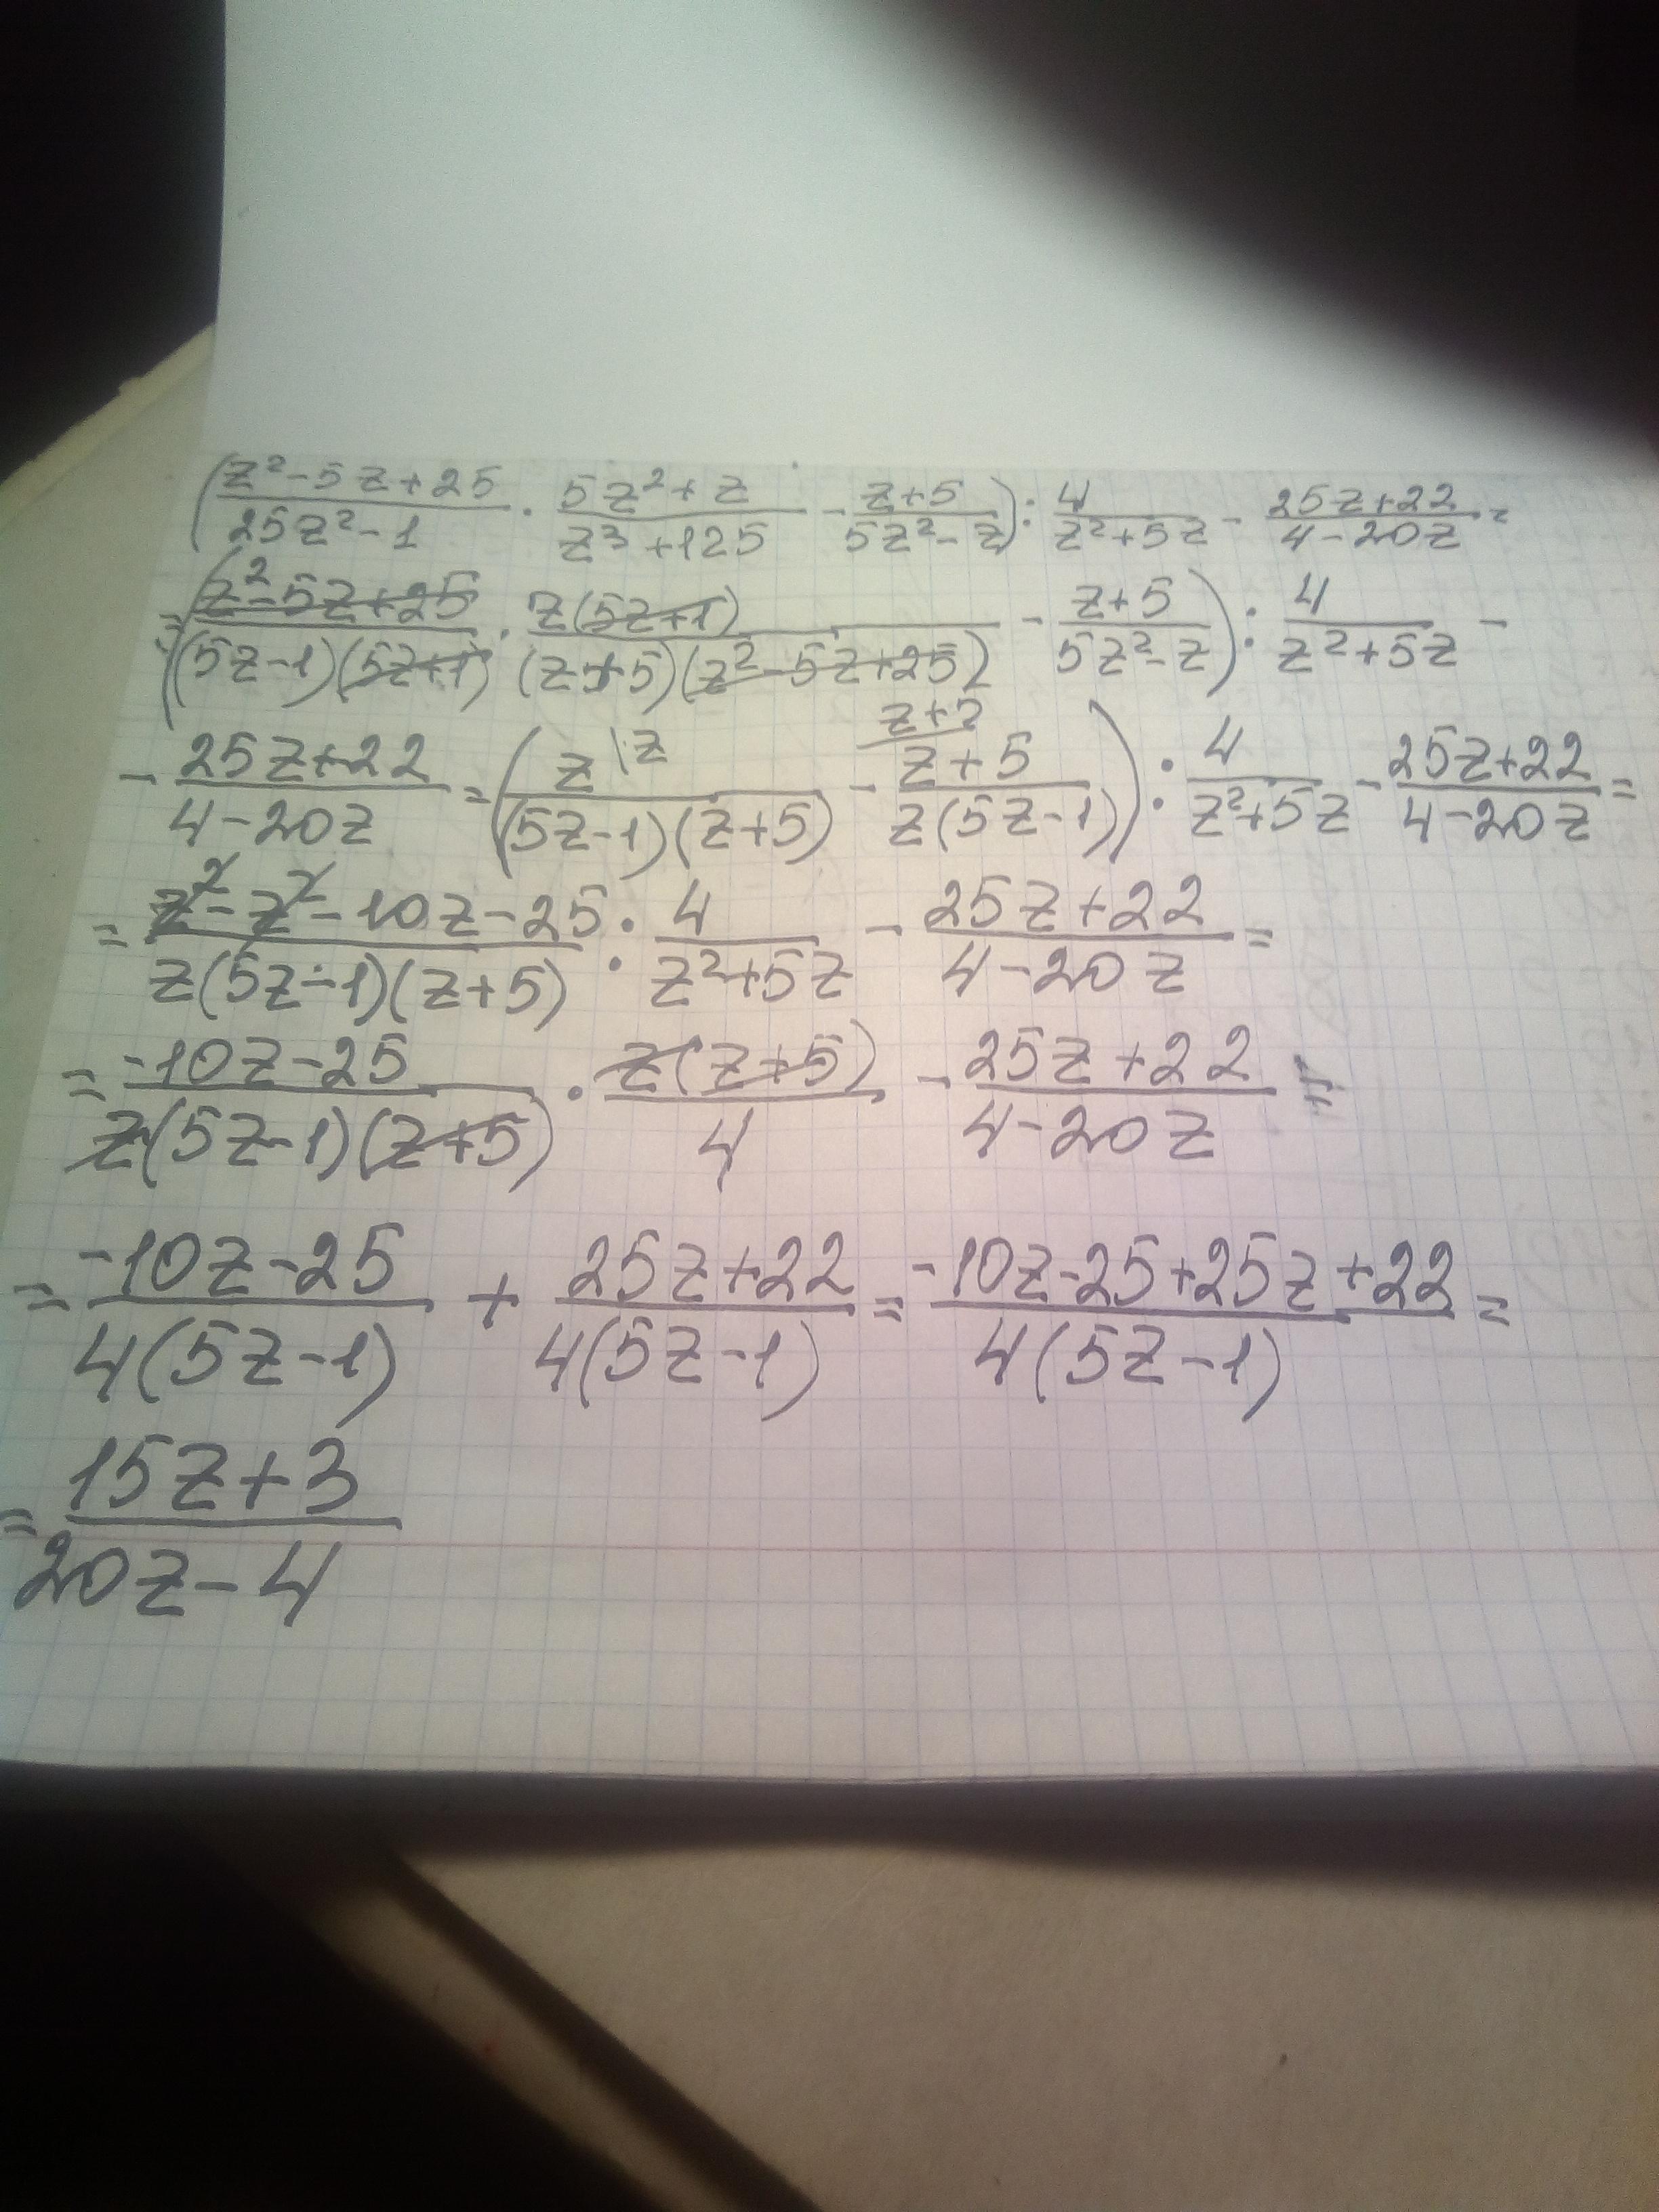 (z²-5z+25)/(25z²-1) · (5z²+z)/(z³+125) - (z+5)/(5z²-z)) : 4/(z²+5z) - (25z+22)/(4-20z) =
= ((z²-5z+25)/((5z-1)(5z+1)) · z(5z+1)/((z+5)(z²-5z+25)) - (z+5)/(5z²-z)) : 4/(z²+5z) -
- (25z+22)/(4-20z) = (z\z/((5z-1)(z+5)) - (z+5)\z+5/(z(5z-1))) : 4/(z²+5z) - (25z+22)/(4-20z) =
= (z²-z²-10z-25)/(z(5z-1)(z+5)) : 4/(z²+5z) - (25z+22)/(4-20z) =
= (-10z-25)/(z(5z-1)(z+5)) · z(z+5)/4 - (25z+22)/(4-20z) =
= (-10z-25)/(4(5z-1)) + (25z+22)/(4(5z-1)) = (-10z-25+25z+22)/(4(5z-1)) =
= (15z+3)/(20z-4)